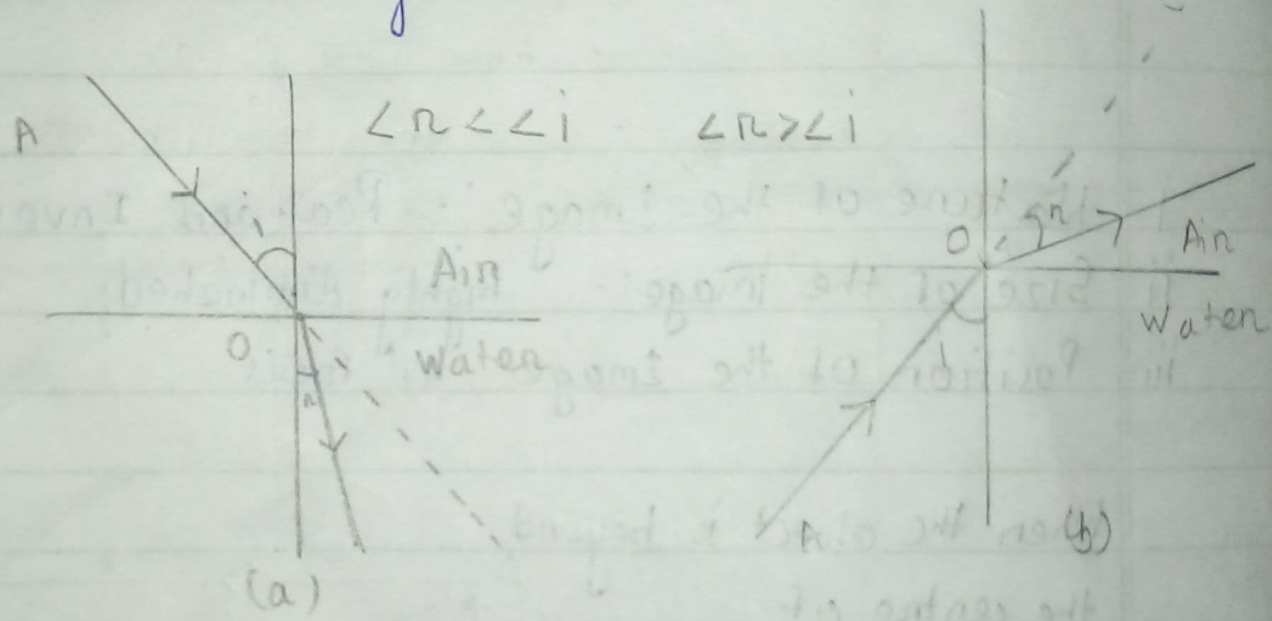 A
∠r < ∠i
∠r > ∠i
i
Air
O
Water
r
(a)
O
r
Air
Water
i
A
(b)